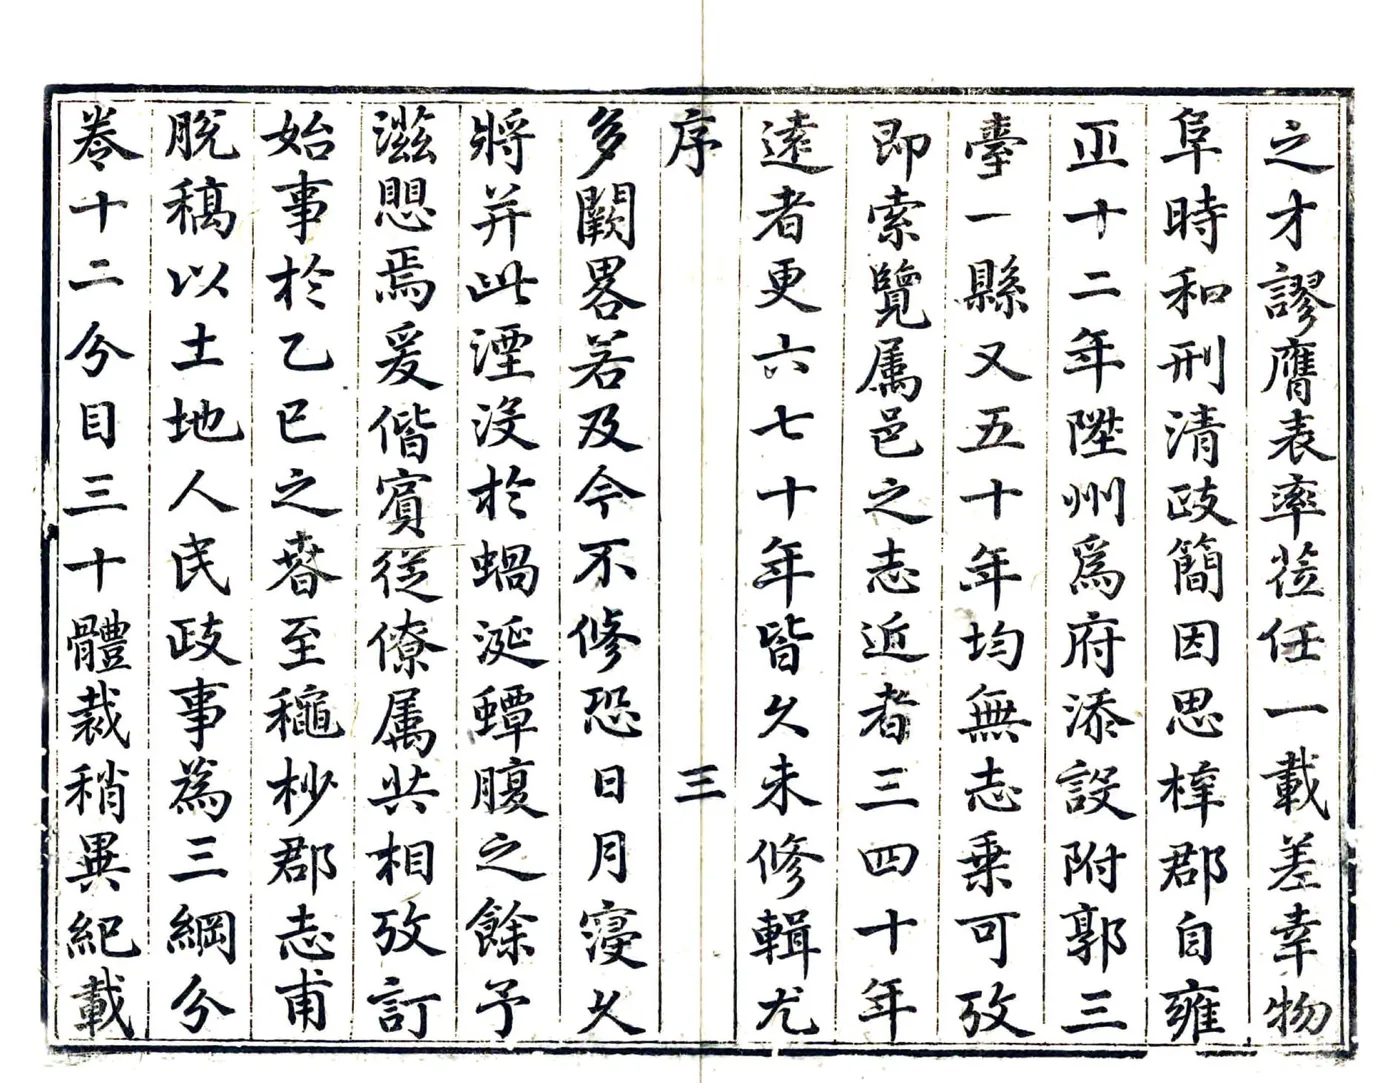 之才謬膺表率莅任一載差幸物
阜時和刑清政簡因思樟郡自雍
正十二年陞州爲府添設附郭三
臺一縣又五十年均無志乗可攷
即索覽属邑之志近者三四十年
遠者更六七十年皆久未修輯尤
序 三
多闕畧若及今不修恐日月寖久
將并此湮没於蝸涎蟫腹之餘予
滋愳焉爰偕賓従僚属共相攷訂
始事於乙巳之春至穐杪郡志甫
脱稿以土地人民政事為三綱分
卷十二分目三十體裁稍異紀載